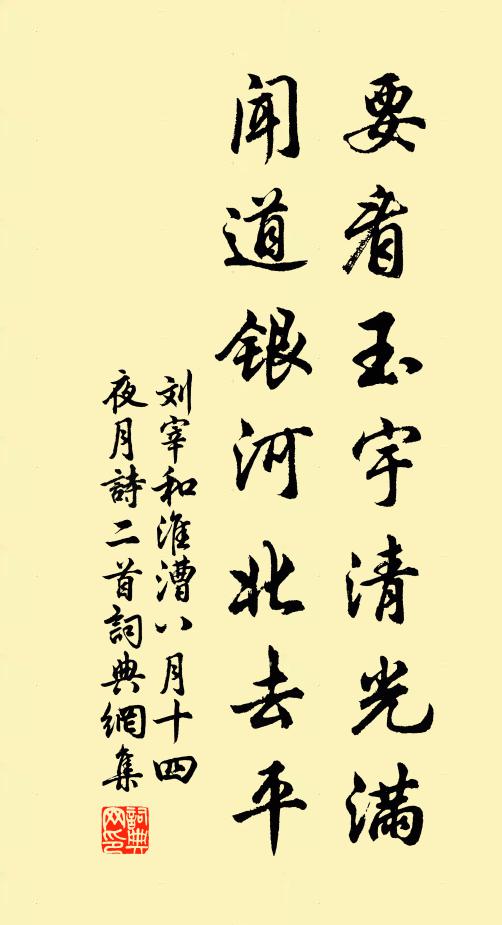 要看玉宇清光满
闻道银河北去平
刘宰和淮漕八月十四
夜月詩二首詞典網集
詞典
网印